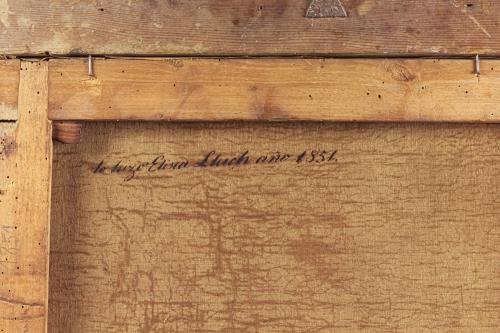 lo hizo Elisa Lluch año 1851.